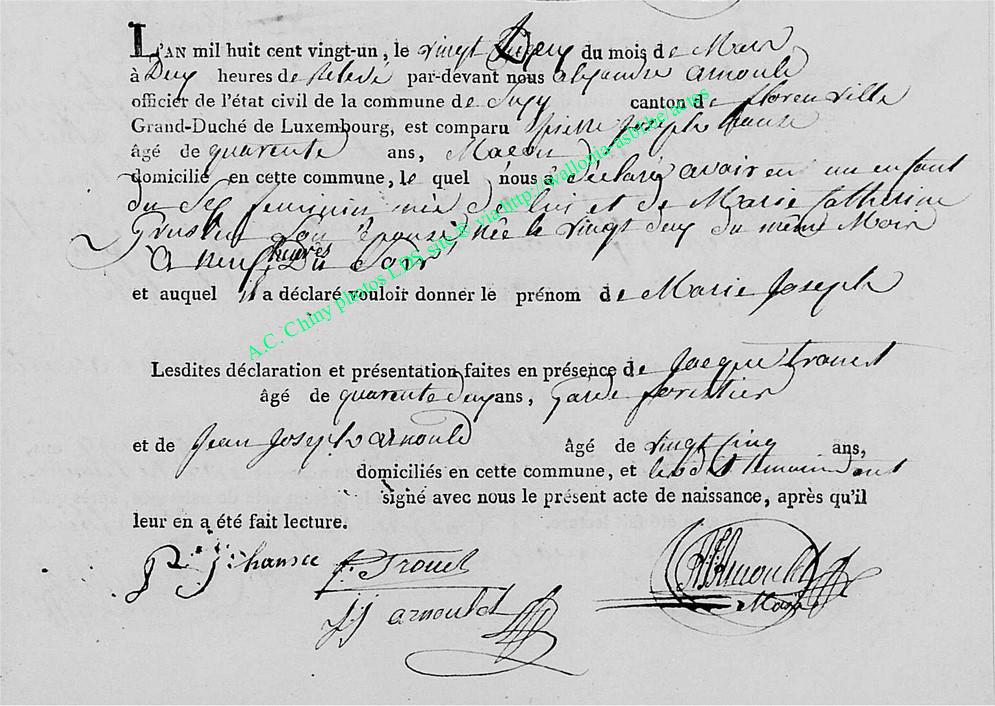 L'AN mil huit cent vingt-un, le vingt deux du mois de Mars
à Deux heures de Relevé par-devant nous alexandre arnould
officier de l'état civil de la commune de canton de florenville
Grand-Duché de Luxembourg, est comparu pierre Joseph
âgé de quarente ans, Macon
domicilié en cette commune, le quel nous a déclaré avoir eu un enfant
du Sex feminin née de lui et de Marie Catherine
son épouse née le vingt deux du même Mois
a neuf heures Du Soir
et auquel il a déclaré vouloir donner le prénom de Marie Joseph
Lesdites déclaration et présentation faites en présence de Jacque trouet
âgé de quarente deux ans, Garde forestier
et de Jean Joseph arnould âgé de vingt cinq ans,
domiciliés en cette commune, et les dit temoins ont
signé avec nous le présent acte de naissance, après qu'il
leur en a été fait lecture.
P. J. hansee J. Trouet
JJ arnould Arnould
Maire
A.C. Chiny photos LDS site @ via http://wallonia-asbl.be/actes